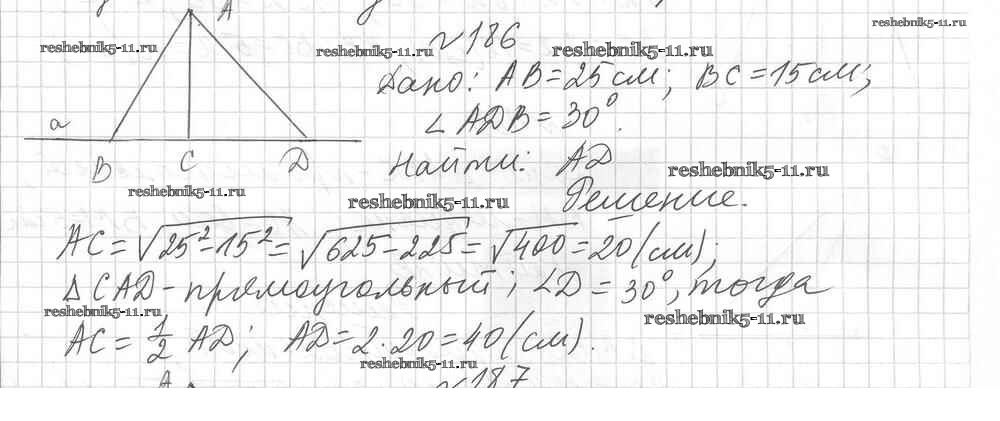 A
reshebnik5-11.ru
reshebnik5-11.ru
№186
reshebnik5-11.ru
reshebnik5-11.ru
Дано: AB=25 см; BC=15 см;
∠ADB=30°.
a
B C D
Найти: AD
reshebnik5-11.ru
reshebnik5-11.ru
reshebnik5-11.ru
Решение.
AC=√25²-15²=√625-225=√400=20(см);
△CAD-прямоугольный; ∠D=30°, тогда
reshebnik5-11.ru
reshebnik5-11.ru
AC=1/2 AD; AD=2·20=40(см).
reshebnik5-11.ru
A
№187